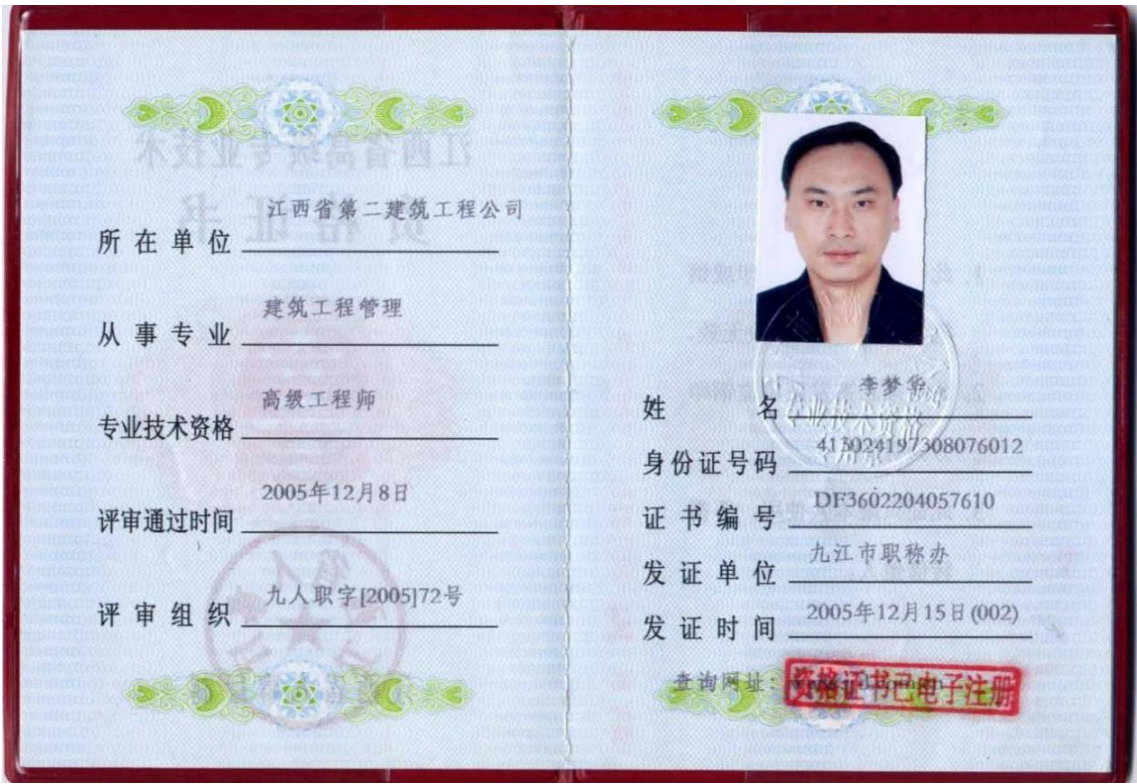 江西省高级专业技术
资格证书
所在单位 江西省第二建筑工程公司
从事专业 建筑工程管理
专业技术资格 高级工程师
评审通过时间 2005年12月8日
评审组织 九人职字[2005]72号
姓名 李梦华
专业技术资格
身份证号码 413024197308076012
证书编号 DF3602204057610
发证单位 九江市职称办
发证时间 2005年12月15日(002)
查询网址:
资格证书已电子注册